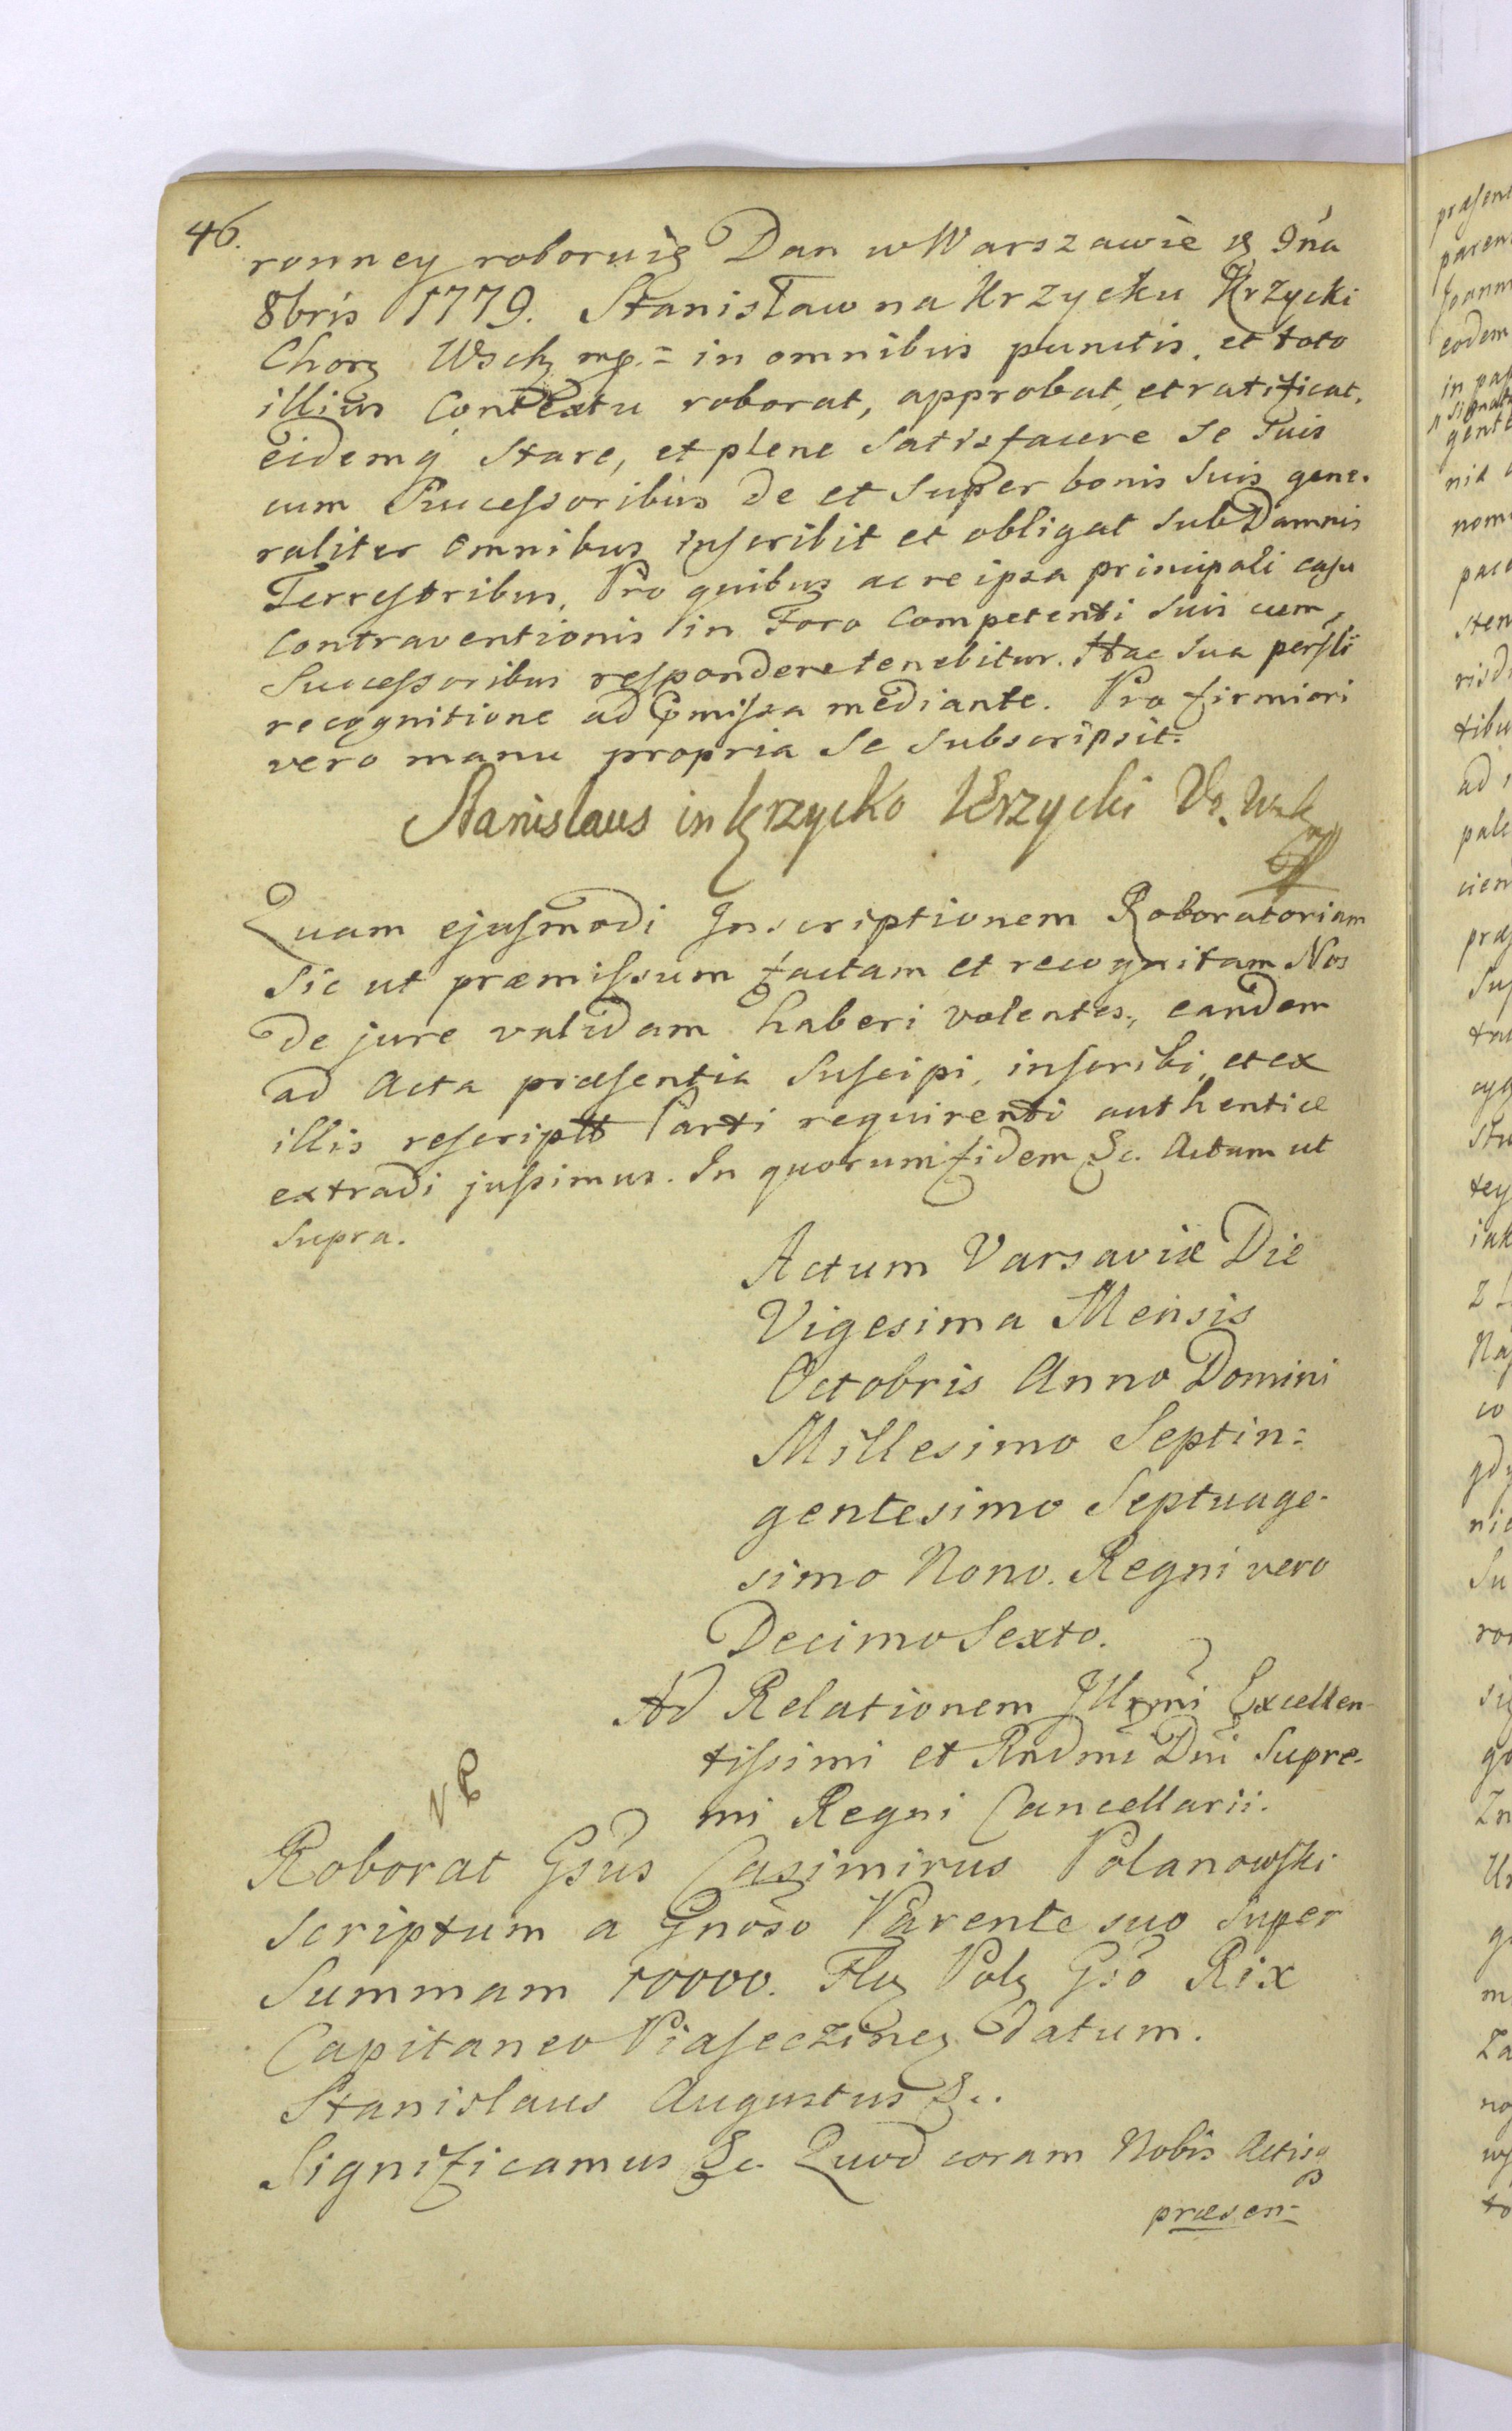 46.
ronney roboruię Dan w Warszawie 9 Dna
8bris 1779. Stanisław na Krzycku Krzycki
Chorą Wsch mp. = in omnibus punctis, et toto
illius Contextu roborat, approbat, et ratificat.
eidemq́ stare, et plene satisfacere se suis
cum Successoribus de et super bonis suis gene-
raliter omnibus inscribit et obligat sub Damnis
Terrestribus, Pro quibus ac re ipsa principali casu
Contraventionis in Foro Competenti suis cum
Successoribus respondere tenebitur. Hac sua persli
recognitione ad pmissa mediante. Pro firmiori
vero manu propria se subscripsit.
Stanislaus in Krzycko Krzycki
Quam ejusmodi Inscriptionem Roboratoriam
sic ut præmissum factam et recognitam Nos
de jure validam haberi volentes, eandem
ad Acta præsentia suscipi, inscribi, et ex
illis rescriptt Parti requirenti authentice
extradi jussimus. In quorum fidem &c. Actum ut
supra.
Actum Varsaviæ Die
Vigesima Mensis
Octobris Anno Domini
Millesimo Septin:
gentesimo Septuage-
simo Nono. Regni vero
Decimo Sexto.
Ad Relationem Illrmi Excellen-
tissimi et Rndmi Dni Supre-
mi Regni Cancellarii.
Roborat Gsus Casimirus Polanowski
scriptum a Gnoso Parente suo super
Summam 10000. Flor Pol Gso Rix
Capitaneo Piaseczinen datum.
Stanislaus Augustus &c.
Significamus &c. Quod coram Nobis Actisq
præsen-